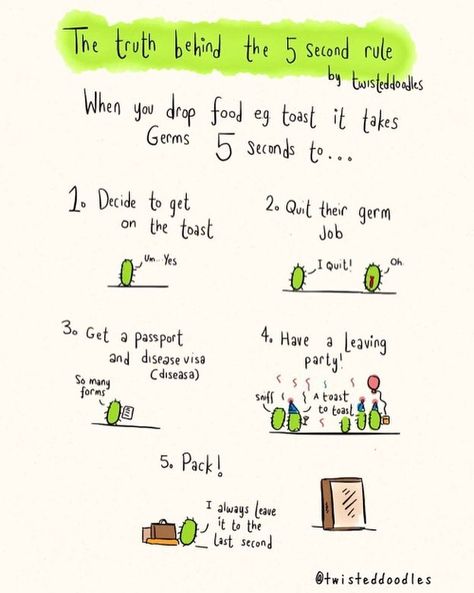 The truth behind the 5 second rule
by twisteddoodles
When you drop food eg toast it takes
Germs 5 seconds to...
1. Decide to get
on the toast
Um... Yes
2. Quit their germ
Job
I Quit!
Oh.
3. Get a passport
and disease visa
(diseasa)
So many
forms
4. Have a leaving
party!
Sniff
A toast
to toast
5. Pack!
I always leave
it to the
last second
@twisteddoodles